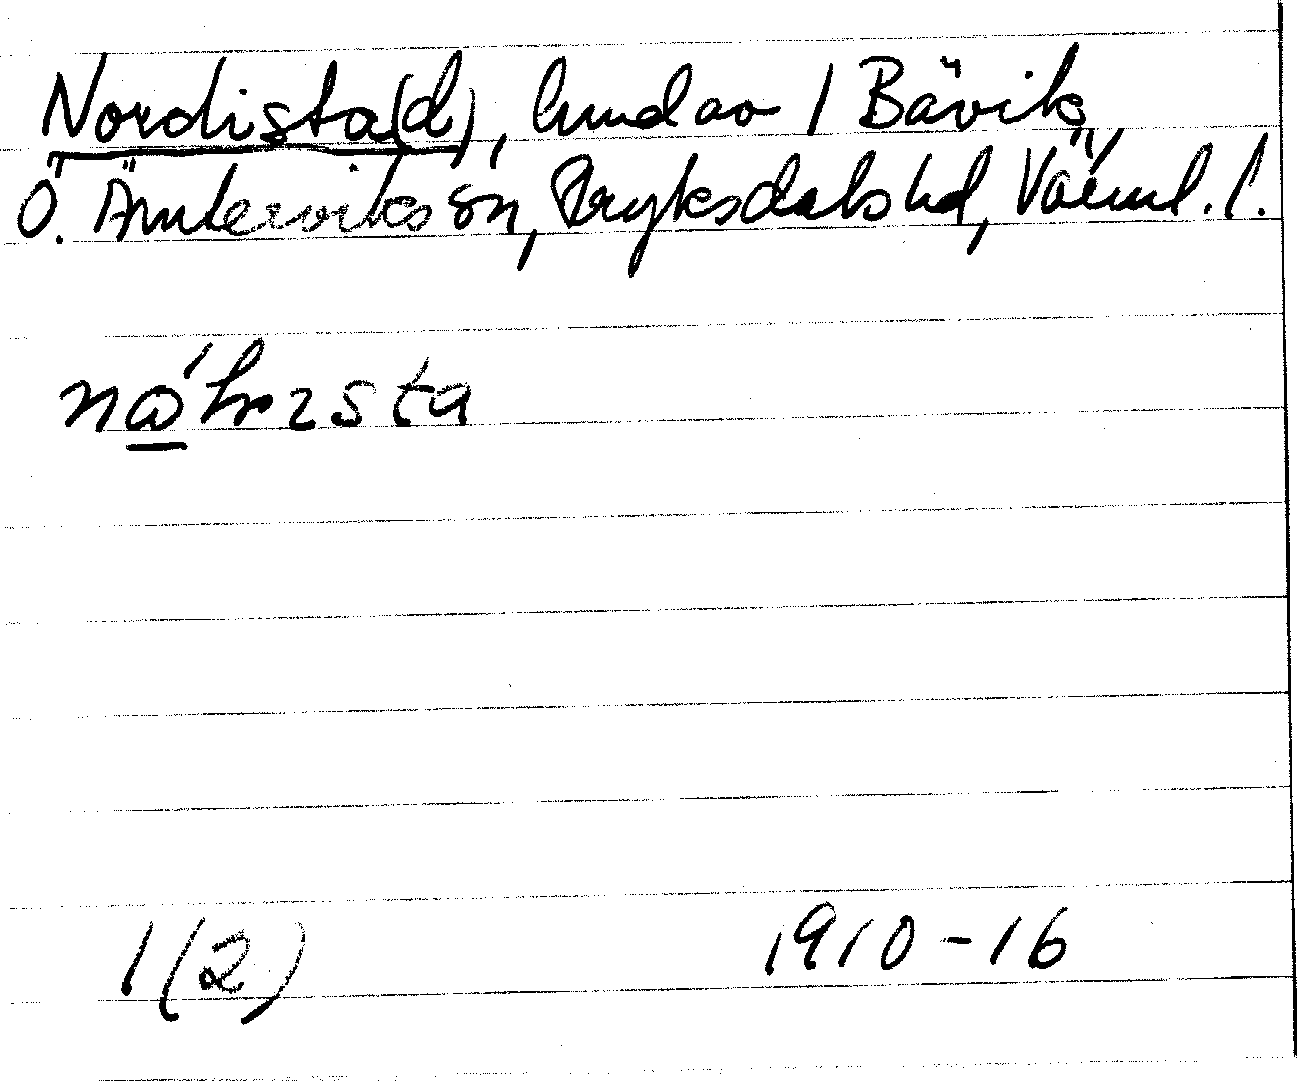 Nordista(d), lund av 1 Bävik,
Ö. Ämterviks sn, Fryksdals hd, Värml. l.
1(2) 1910-16